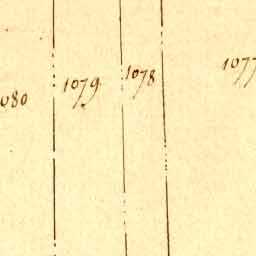 080
1079
1078
1077